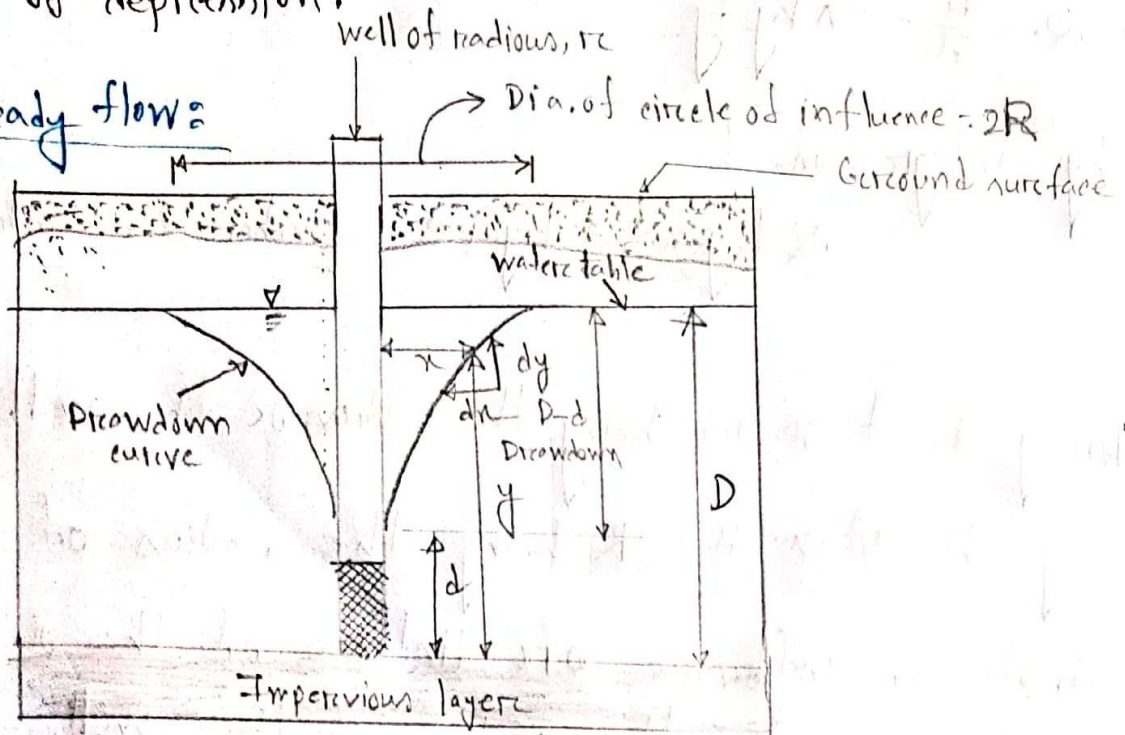 of depression.
well of radious, rc
eady flow:
Dia. of circle od influence - 2R
Gercound surcface
waterc table
x
dy
dx
D-d
Drcowdown
Drcowdown
curcve
y
D
d
Impercvious layerc